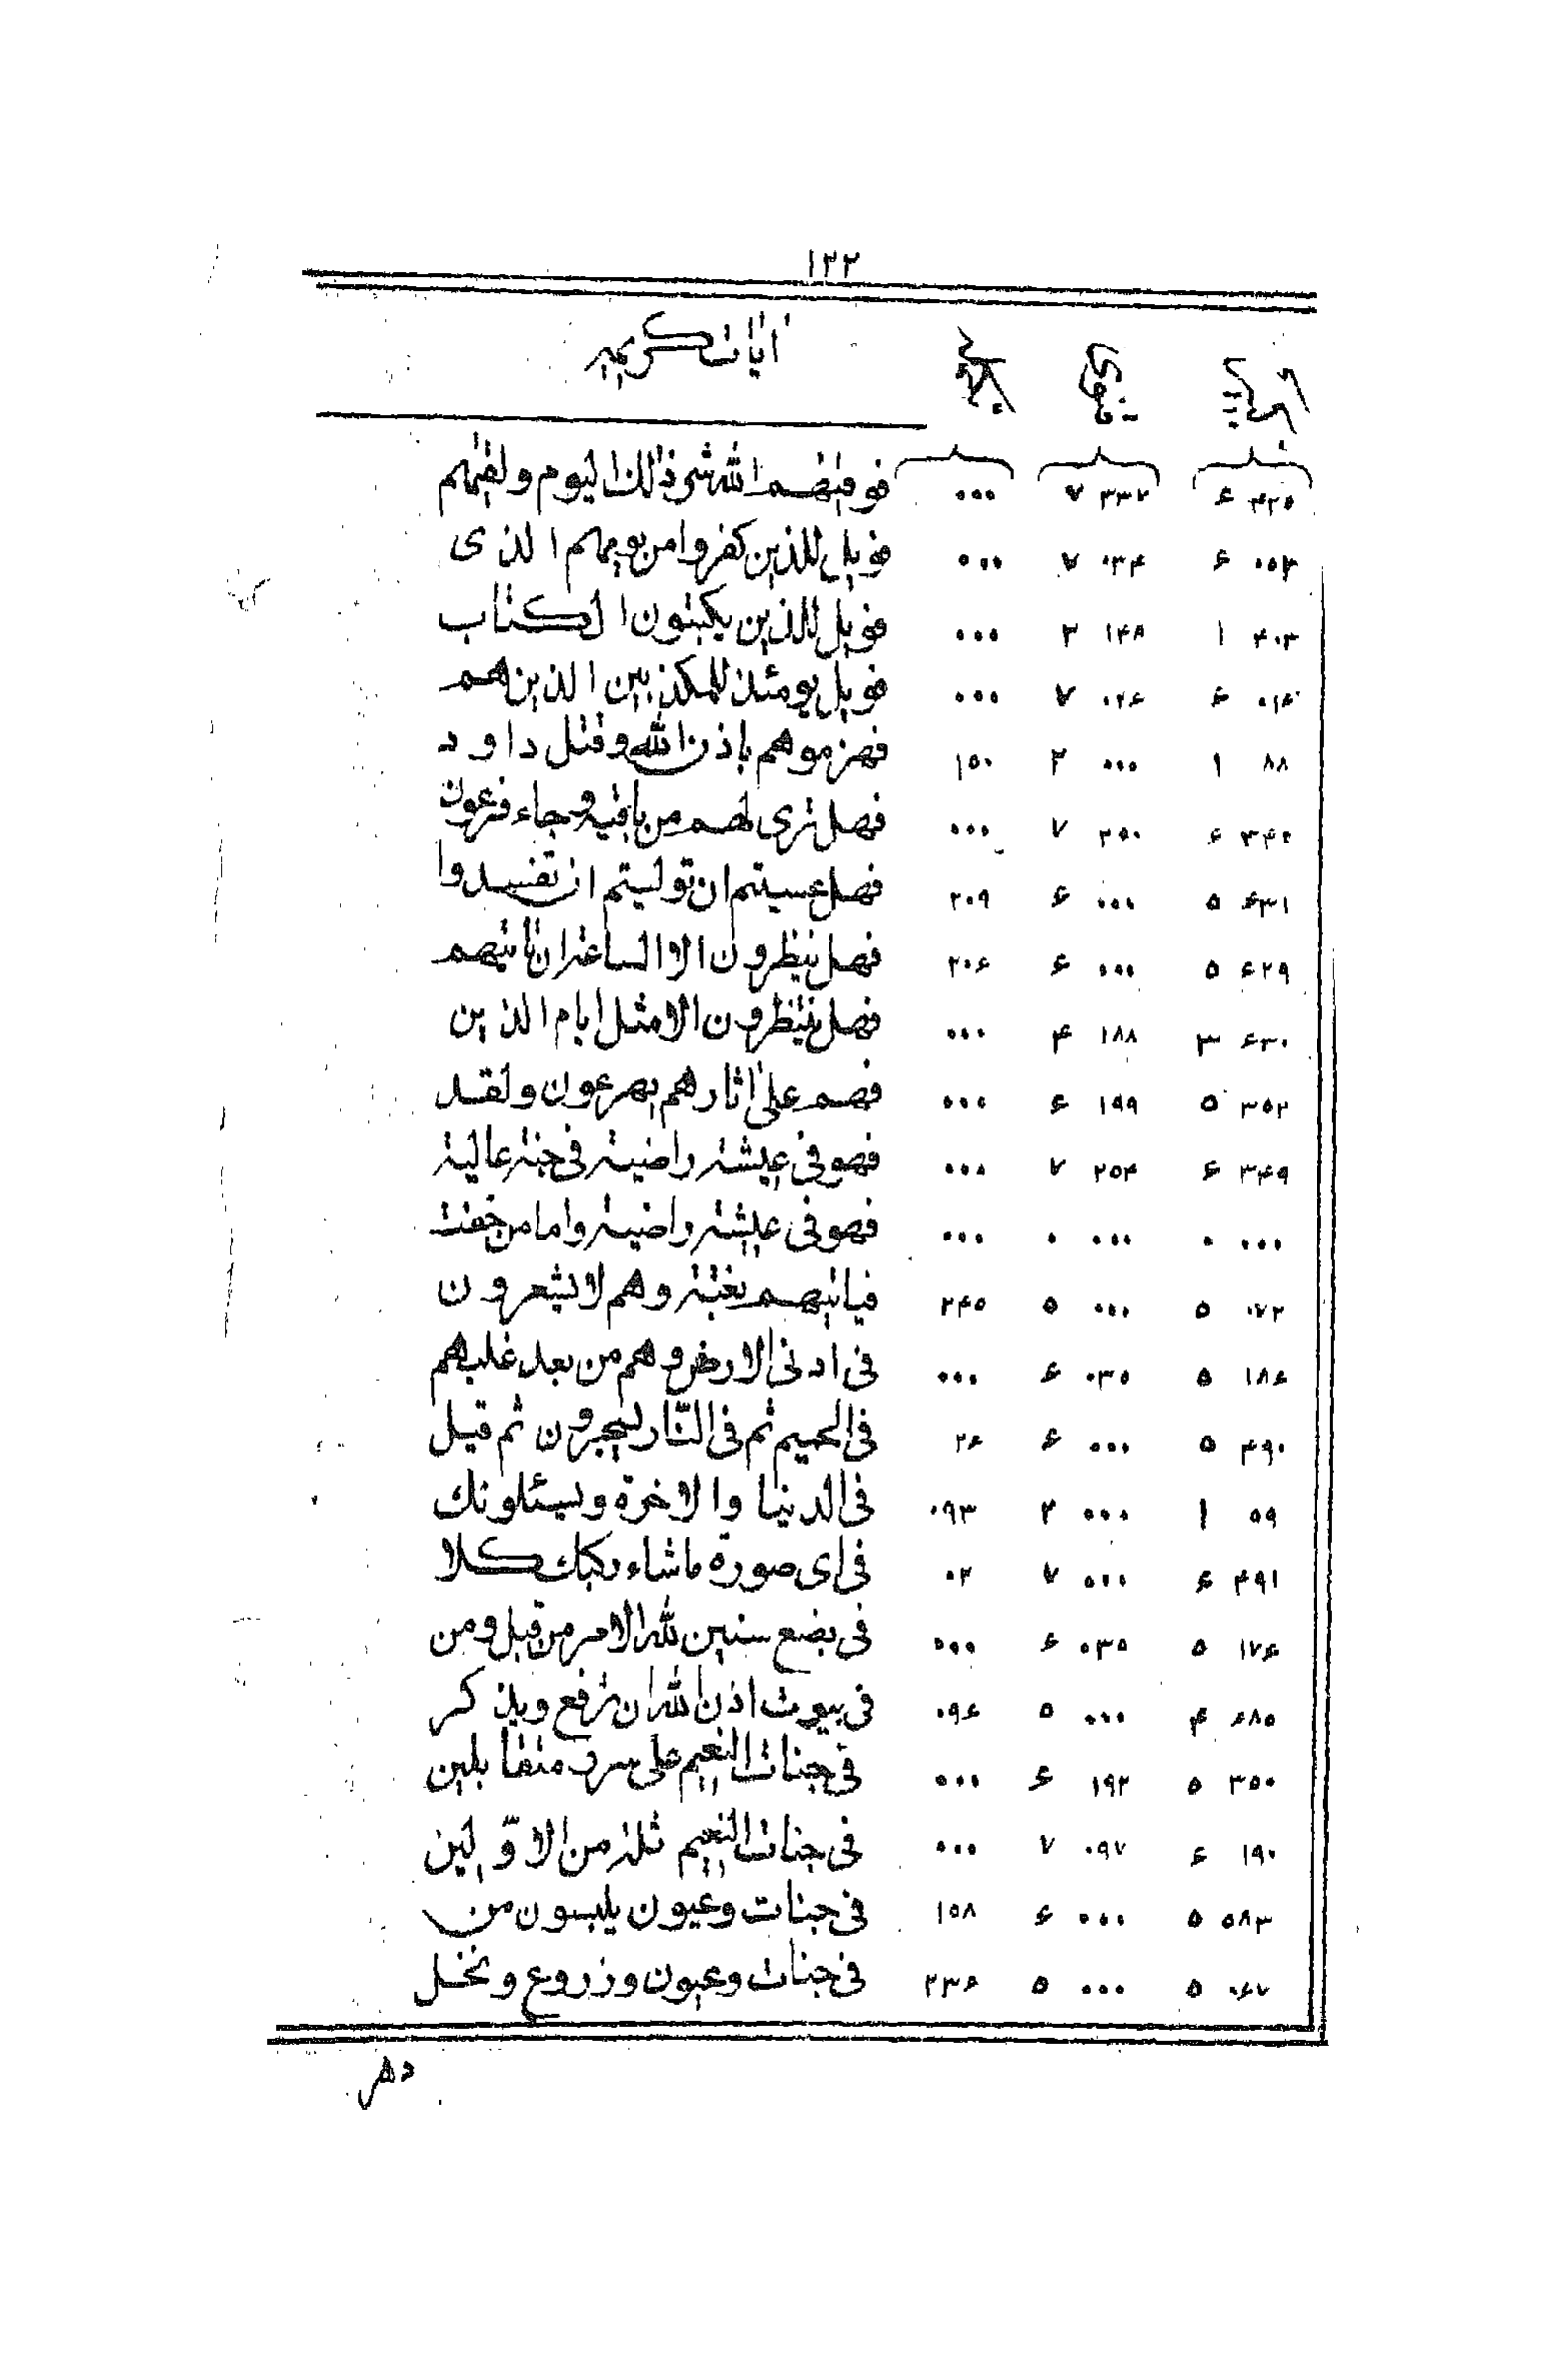 ١٣٢
ايات كريمه
٤٢٥ ۶ ٣٣٢ ٧ ٠٠٠ فوقيهم الله شر ذالك اليوم ولقيهم
٠٥٣ ۶ ٠٣۴ ٧ ٠٠٠ فويل للذين كفروا من يومهم الذى
۴٠٣ ١ ١۴٨ ٢ ٠٠٠ فويل للذين يكتبون الكتاب
٠١۶ ۶ ٠٢۶ ٧ ٠٠٠ فويل يومئذ للمكذبين الذين هم
٨٨ ١ ٠٠٠ ٢ ١۵٠ فهزموهم باذن الله وقتل داود
٣۴٢ ۶ ٢۵٠ ٧ ٠٠٠ فهل ترى لهم من باقية وجاء فرعون
۶٣١ ۵ ٠٠٠ ۶ ٢٠٩ فهل عسيتم ان توليتم ان تفسدوا
۶٢٩ ۵ ٠٠٠ ۶ ٢٠۶ فهل ينظرون الا الساعة ان تاتيهم
۶٣٠ ٣ ١٨٨ ۴ ٠٠٠ فهل ينتظرون الا مثل ايام الذين
٣۵٢ ۵ ١٩٩ ۶ ٠٠٠ فهم على اثارهم يهرعون ولقد
٣۴٩ ۶ ٢۵۴ ٧ ٠٠٠ فهو فى عيشة راضية فى جنة عالية
٠٠٠ ٠ ٠٠٠ ٠ ٠٠٠ فهو فى عيشة راضية واما من خفت
٠٧٢ ۵ ٠٠٠ ۵ ٢۴۵ فياتيهم بغتة وهم لا يشعرون
١٨۶ ۵ ٠٣۵ ۶ ٠٠٠ فى ادنى الارض وهم من بعد غلبهم
۴٩٠ ۵ ٠٠٠ ۶ ٢۶ فى الحميم ثم فى النّار يسجرون ثم قيل
۵٩ ١ ٠٠٠ ٢ ٠٩٣ فى الدنيا والاخرة ويسئلونك
۴٩١ ۶ ٠٠٠ ٧ ٠٢ فى اى صورة ماشاء ركبك كلا
١٧۶ ۵ ٠٣۵ ۶ ٠٠٠ فى بضع سنين لله الامر من قبل ومن
۶٨۵ ۴ ٠٠٠ ۵ ٠٩۶ فى بيوت اذن الله ان ترفع ويذكر
٣۵٠ ۵ ١٩٢ ۶ ٠٠٠ فى جنات النعيم على سرر متقابلين
١٩٠ ۶ ٠٩٧ ٧ ٠٠٠ فى جنات النعيم ثلة من الاوّلين
۵٨٣ ۵ ٠٠٠ ۶ ١۵٨ فى جنات وعيون يلبسون من
٠۶٧ ۵ ٠٠٠ ۵ ٢٣۶ فى جنات وعيون وزروع ونخل